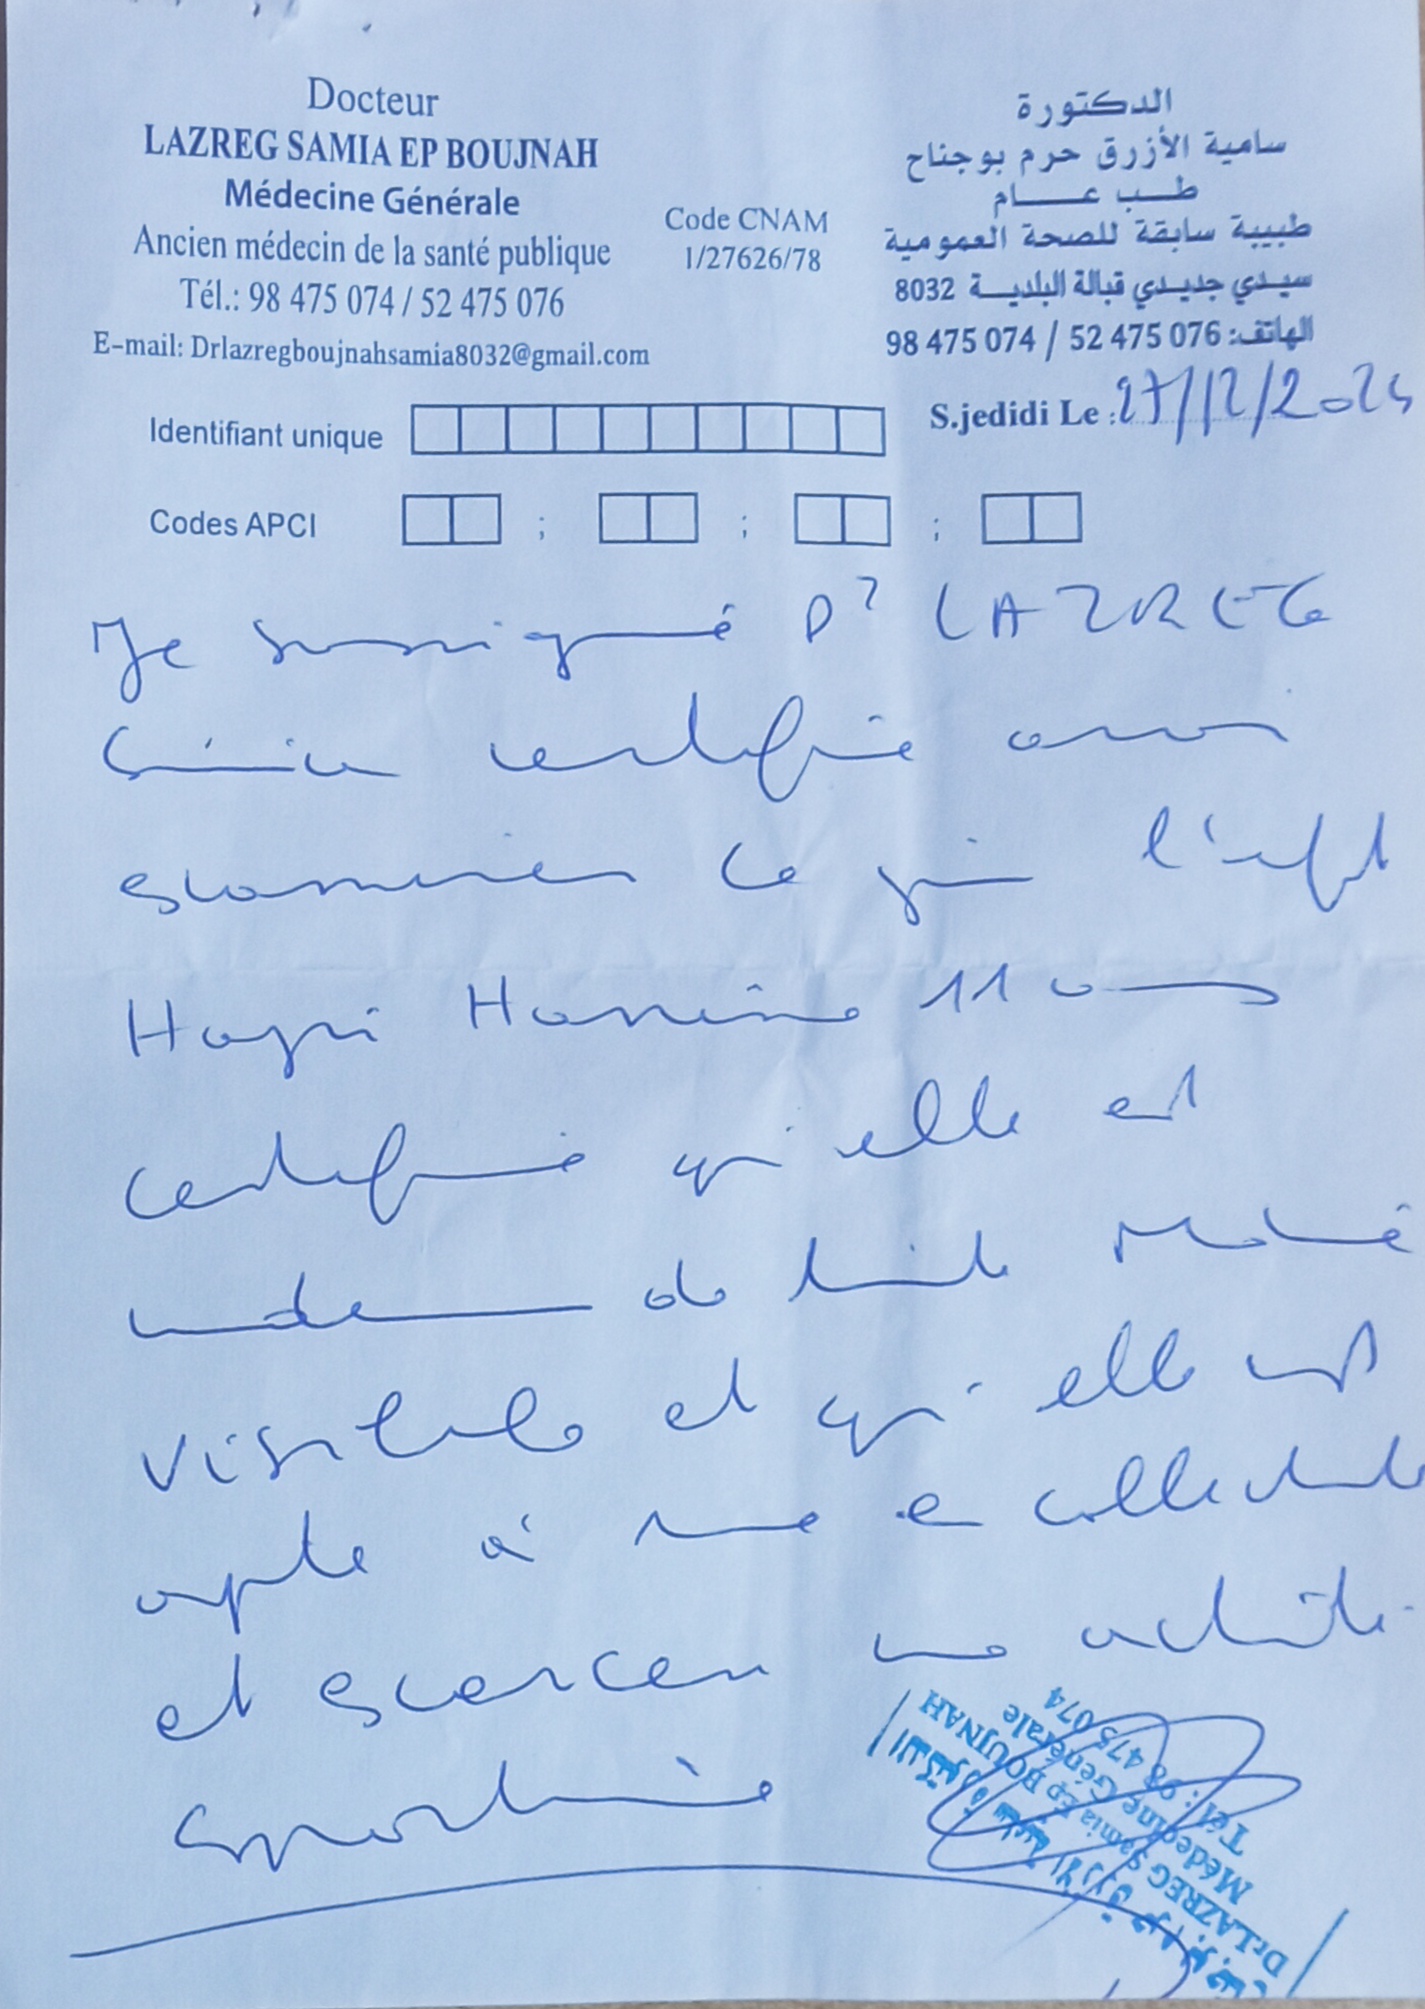 Docteur
LAZREG SAMIA EP BOUJNAH
Médecine Générale
Ancien médecin de la santé publique
Tél.: 98 475 074 / 52 475 076
E-mail: Drlazregboujnahsamia8032@gmail.com
Code CNAM
1/27626/78
الدكتورة
سامية الأزرق حرم بوجناح
طب عام
طبيبة سابقة للصحة العمومية
سيدي جديدي قبالة البلدية 8032
الهاتف: 98 475 074 / 52 475 076
S.jedidi Le : 27/12/2024
Identifiant unique
Codes APCI ; ; ;
Je soussigné Dr LAZREG
Samia certifie avoir
examiner ce jour l'enfant
Hanine 11 ans
certifie qu'elle est
indemne de toute maladie
visible et qu'elle est
apte à vivre en collectivité
et exercer une activité
sportive
الدكتورة سامية الأزرق حرم بوجناح
Dr LAZREG Samia Ep BOUJNAH
Médecine Générale
Tél : 98 475 074